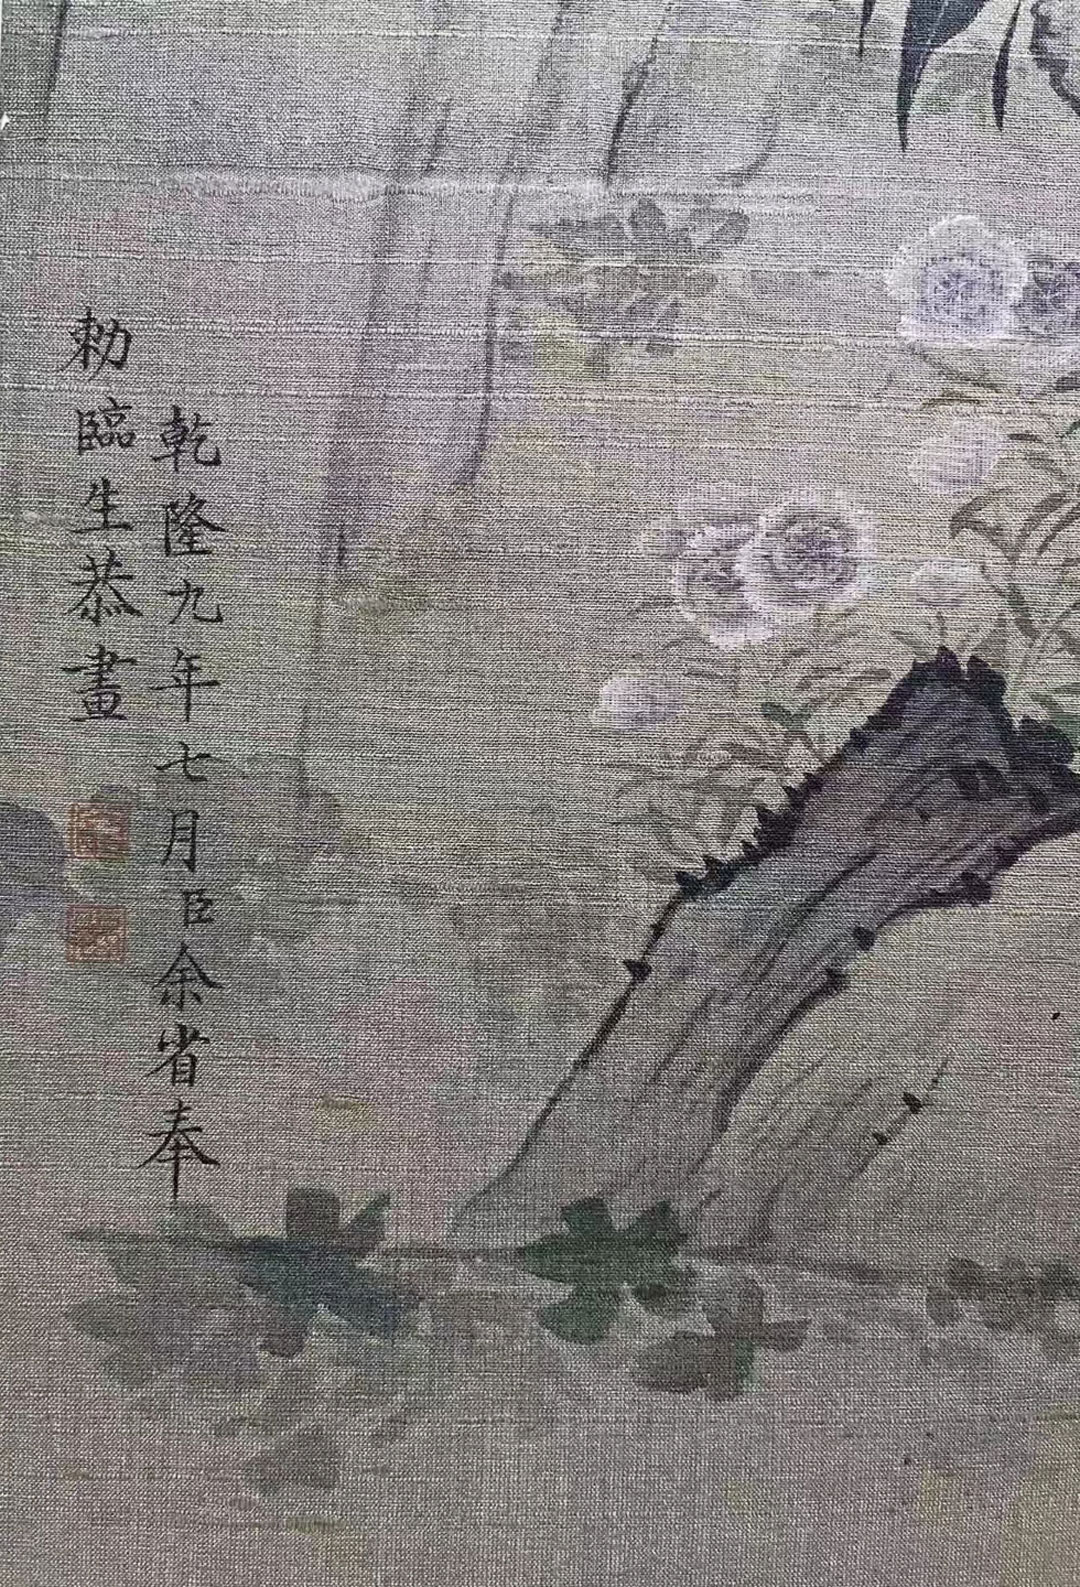 乾隆九年七月臣余省奉
勅臨生恭畫